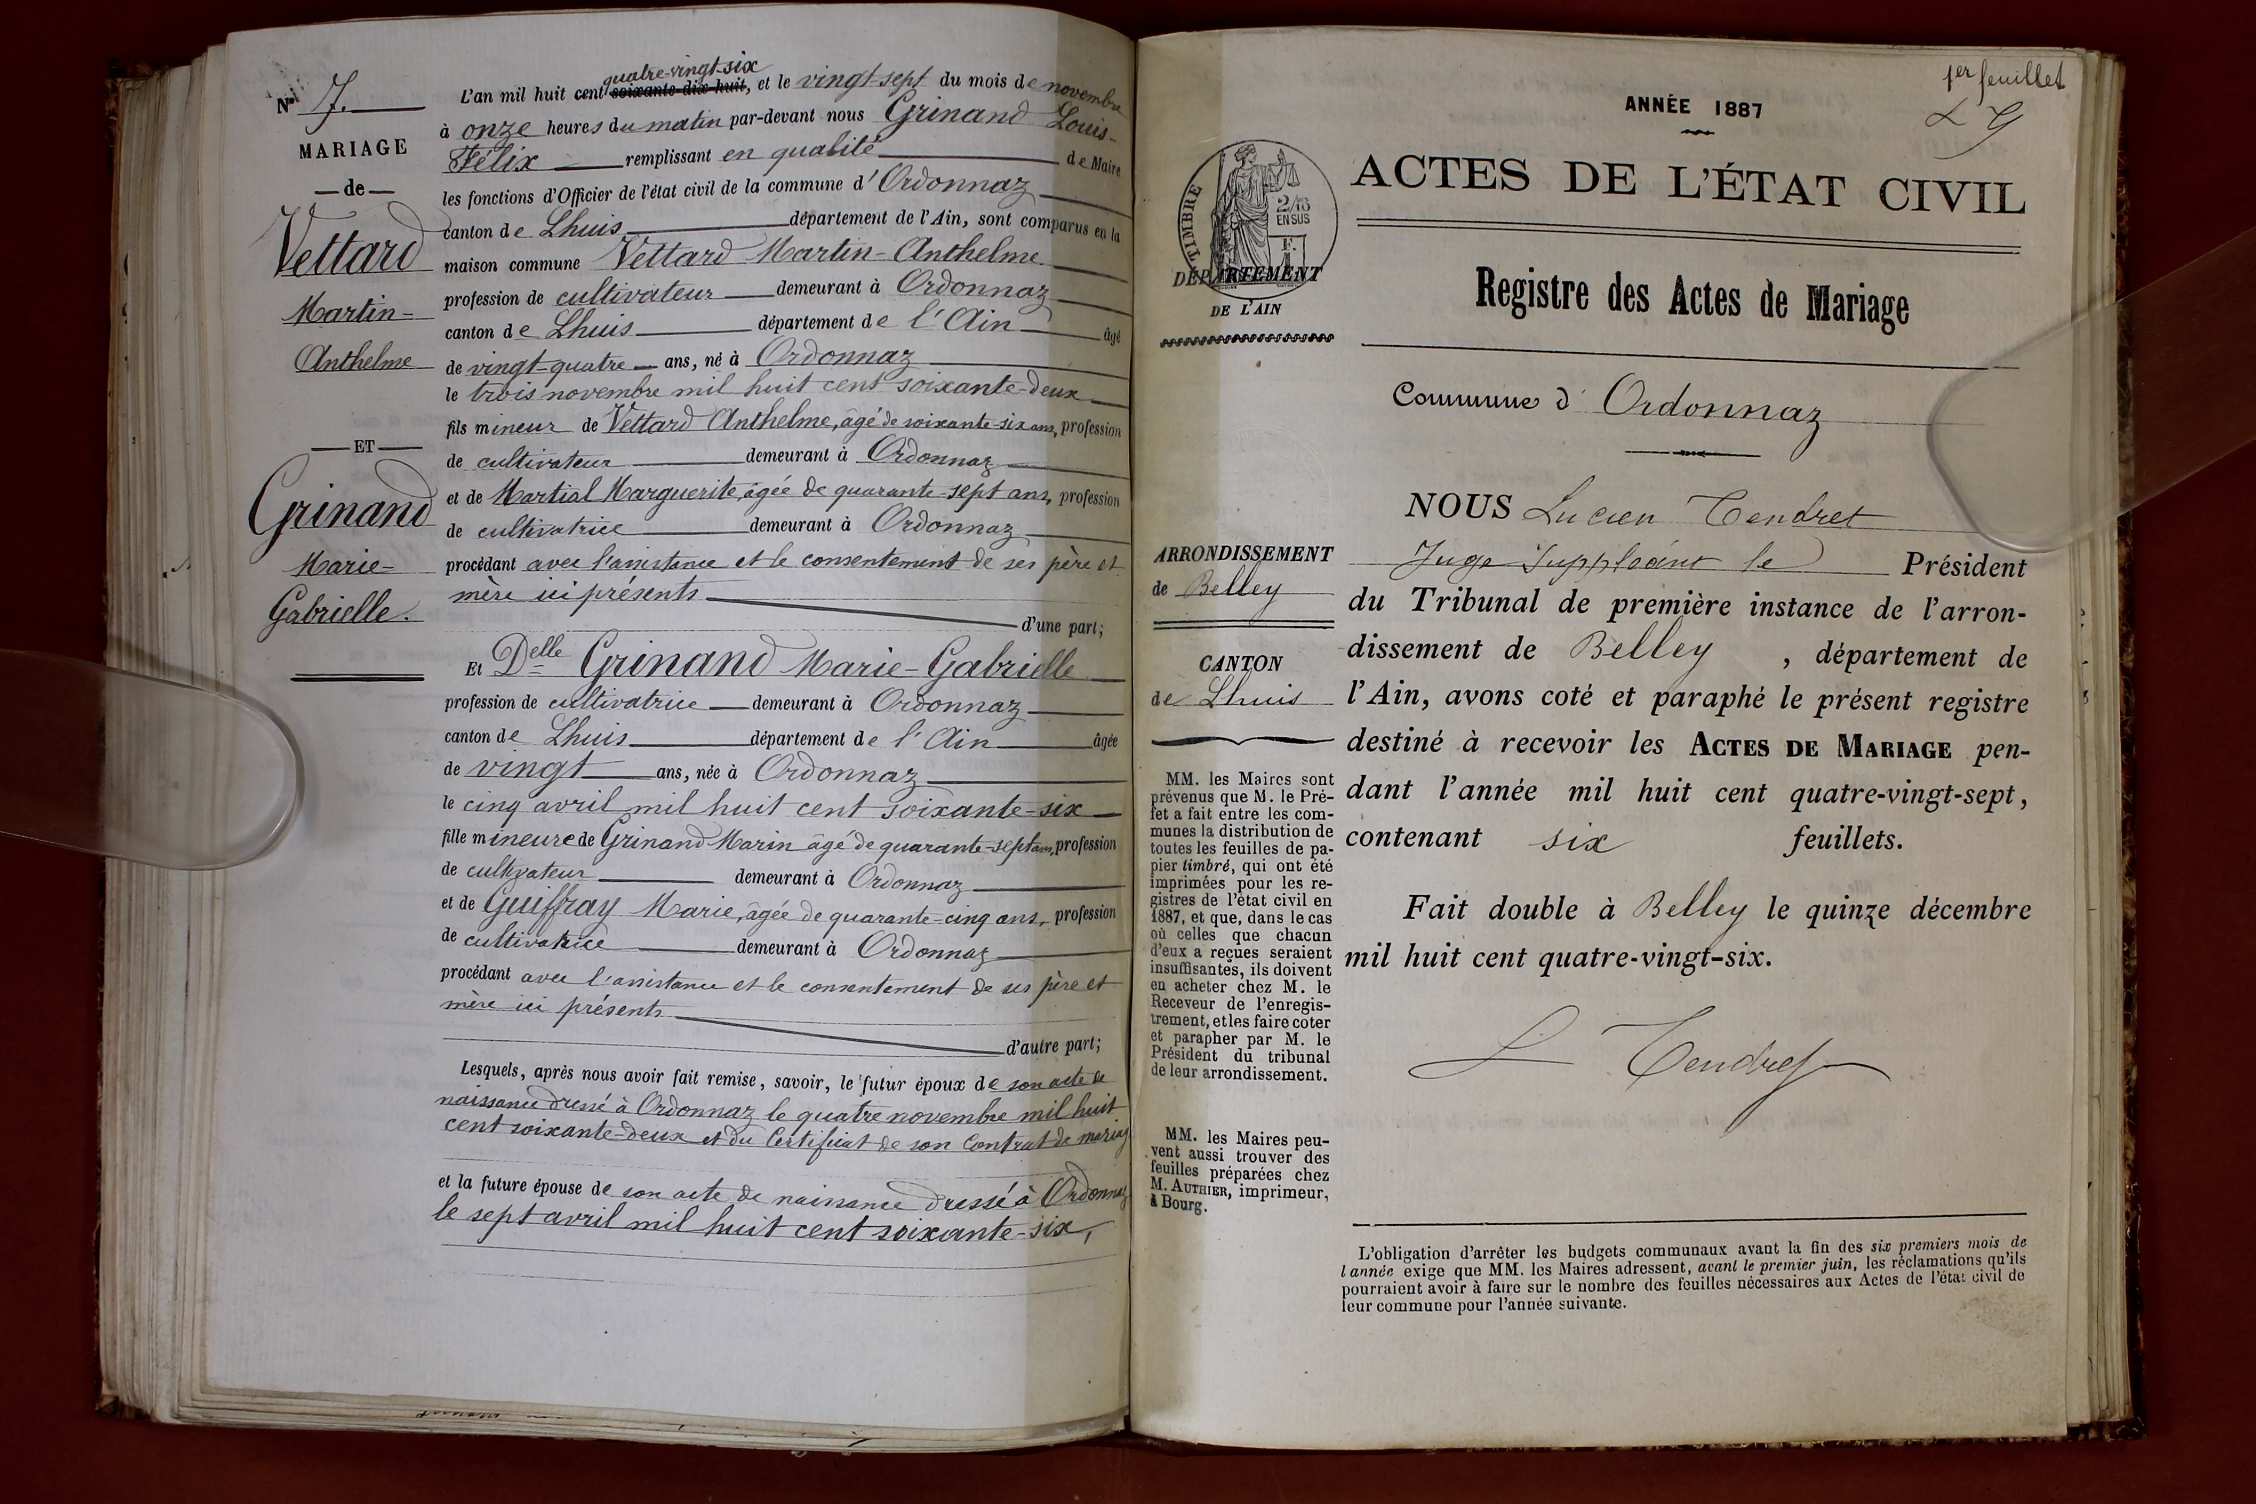 N° 7.
MARIAGE
— de —
Vettard
Martin-
Anthelme
— ET —
Grinand
Marie-
Gabrielle.
quatre-vingt-six
L'an mil huit cent soixante-dix-huit, et le vingt-sept du mois de novembre
à onze heures du matin par-devant nous Grinand Louis-
Félix remplissant en qualité de Maire
les fonctions d'Officier de l'état civil de la commune d'Ordonnaz
canton de Lhuis département de l'Ain, sont comparus en la
maison commune Vettard Martin-Anthelme
profession de cultivateur demeurant à Ordonnaz
canton de Lhuis département de l'Ain âgé
de vingt-quatre ans, né à Ordonnaz
le trois novembre mil huit cent soixante-deux
fils mineur de Vettard Anthelme, âgé de soixante-six ans, profession
de cultivateur demeurant à Ordonnaz
et de Martial Marguerite, âgée de quarante-sept ans, profession
de cultivatrice demeurant à Ordonnaz
procédant avec l'assistance et le consentement de ses père et
mère ici présents
d'une part;
Et Delle Grinand Marie-Gabrielle
profession de cultivatrice demeurant à Ordonnaz
canton de Lhuis département de l'Ain âgée
de vingt ans, née à Ordonnaz
le cinq avril mil huit cent soixante-six
fille mineure de Grinand Marin âgé de quarante-sept ans, profession
de cultivateur demeurant à Ordonnaz
et de Guiffray Marie, âgée de quarante-cinq ans, profession
de cultivatrice demeurant à Ordonnaz
procédant avec l'assistance et le consentement de ses père et
mère ici présents
d'autre part;
Lesquels, après nous avoir fait remise, savoir, le futur époux de son acte de
naissance dressé à Ordonnaz le quatre novembre mil huit
cent soixante-deux et du Certificat de son Contrat de mariag
et la future épouse de son acte de naissance dressé à Ordonnaz
le sept avril mil huit cent soixante-six,
1er feuillet
L G
ANNÉE 1887
ACTES DE L'ÉTAT CIVIL
TIMBRE
2/10
EN SUS
F.
DÉPARTEMENT
DE L'AIN
Registre des Actes de Mariage
Commune d'Ordonnaz
ARRONDISSEMENT
de Belley
CANTON
de Lhuis
MM. les Maires sont
prévenus que M. le Pré-
fet a fait entre les com-
munes la distribution de
toutes les feuilles de pa-
pier timbré, qui ont été
imprimées pour les re-
gistres de l'état civil en
1887, et que, dans le cas
où celles que chacun
d'eux a reçues seraient
insuffisantes, ils doivent
en acheter chez M. le
Receveur de l'enregis-
trement, et les faire coter
et parapher par M. le
Président du tribunal
de leur arrondissement.
MM. les Maires peu-
vent aussi trouver des
feuilles préparées chez
M. AUTHIER, imprimeur,
à Bourg.
NOUS Lucien Tendret
Juge Suppléant le Président
du Tribunal de première instance de l'arron-
dissement de Belley, département de
l'Ain, avons coté et paraphé le présent registre
destiné à recevoir les ACTES DE MARIAGE pen-
dant l'année mil huit cent quatre-vingt-sept,
contenant six feuillets.
Fait double à Belley le quinze décembre
mil huit cent quatre-vingt-six.
L Tendret
L'obligation d'arrêter les budgets communaux avant la fin des six premiers mois de
l'année exige que MM. les Maires adressent, avant le premier juin, les réclamations qu'ils
pourraient avoir à faire sur le nombre des feuilles nécessaires aux Actes de l'état civil de
leur commune pour l'année suivante.